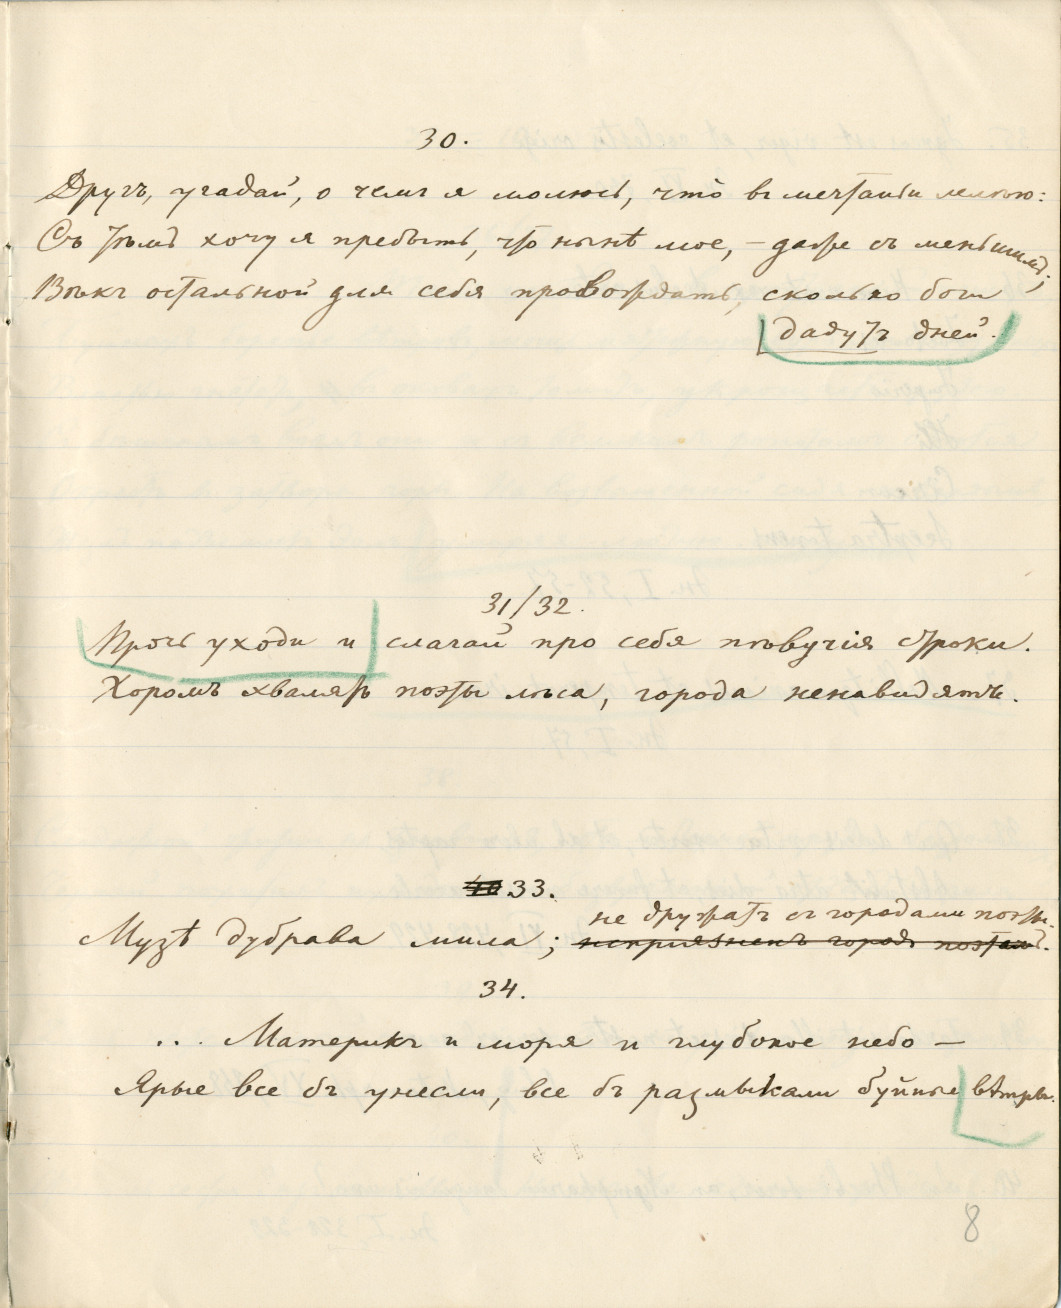 30.
Другъ, угадай, о чемъ я молюсь, что въ мечтаньи лелѣю:
Съ тѣмъ хочу я пребыть, что нынѣ мое, – даже съ меньшимъ;
Вѣкъ остальной для себя провождать, сколько боги
дадутъ дней.
31/32.
Прочь уходи и слагай про себя пѣвучія строки.
Хоромъ хвалятъ поэты лѣса, города ненавидятъ.
33.
не дружатъ съ городами поэты.
Музѣ дубрава мила; непріязненъ городъ поэтамъ.
34.
... Материкъ и моря и глубокое небо —
Ярые все бъ унесли, все бъ размыкали буйные вѣтры.
8